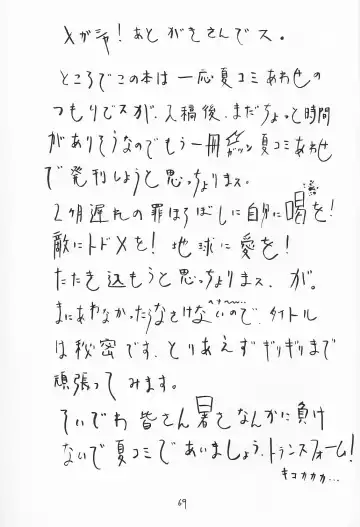 メガシャ!あとがきさんでス。
ところでこの本は一応夏コミあわせの
つもりでスが、入稿後、まだちょっと時間
がありそうなのでもう一冊ガツン夏コミあわせ
で発刊しようと思っちょりまス。
2ヶ月遅れの罪ほろぼしに自分に喝を!
敵にトドメを!地球に愛を!
たたき込もうと思っちょりまス。が。
まにあわなかったらなさけないので、タイトル
は秘密です。とりあえずギリギリまで
頑張ってみます。
そいでわ皆さん暑さなんかに負け
ないで夏コミであいましょう、トランスフォーム!
キコカカカ…
69